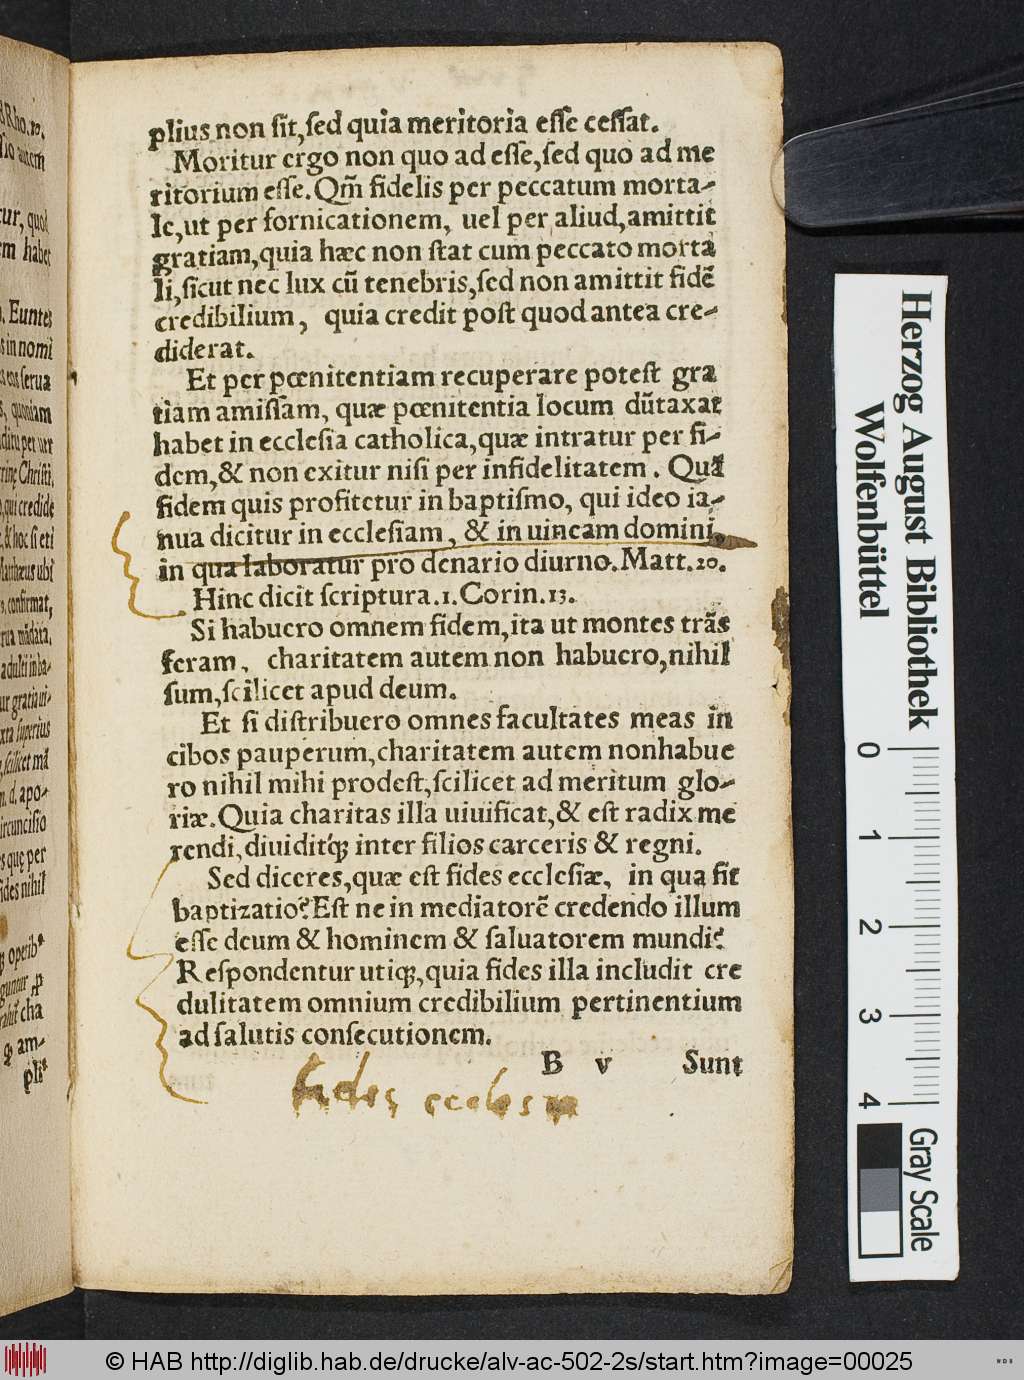 dRho.10.
sio autem
tur, quod
em habet
Euntes
s in nomī
s eos serua
s, quoniam
Christi,
qui credide
& hoc si eti
Matthæus ubi
confirmat,
rua mādata,
adulti in ba-
ur gratia
xta superius
scilicet
d. apo-
ircuncisio
s quę per
fides nihil
operib⁹
cha
am-
pli⁹
plius non sīt, sed quia meritoria esse cessat.
Moritur ergo non quo ad esse, sed quo ad me
ritorium esse. Qm̄ fidelis per peccatum morta-
le, ut per fornicationem, uel per aliud, amittit
gratiam, quia hæc non stat cum peccato morta
li, sicut nec lux cū tenebris, sed non amittit fidē
credibilium, quia credit post quod antea cre-
diderat.
Et per pœnitentiam recuperare potest gra
tiam amissam, quæ pœnitentia locum dūtaxat
habet in ecclesia catholica, quæ intratur per fi-
dem, & non exitur nisi per infidelitatem. Quā
fidem quis profitetur in baptismo, qui ideo ia-
nua dicitur in ecclesiam, & in uineam domini,
in qua laboratur pro denario diurno. Matt.20.
Hinc dicit scriptura.1.Corin.13.
Si habuero omnem fidem, ita ut montes trās
feram, charitatem autem non habuero, nihil
sum, scilicet apud deum.
Et si distribuero omnes facultates meas in
cibos pauperum, charitatem autem nonhabue
ro nihil mihi prodest, scilicet ad meritum glo-
riæ. Quia charitas illa uiuificat, & est radix me
rendi, diuiditq; inter filios carceris & regni.
Sed diceres, quæ est fides ecclesiæ, in qua fit
baptizatio? Est ne in mediatorē credendo illum
esse deum & hominem & saluatorem mundi?
Respondentur utiq;, quia fides illa includit cre
dulitatem omnium credibilium pertinentium
ad salutis consecutionem.
B v Sunt
fides ecclesiæ
Herzog August Bibliothek
Wolfenbüttel
0 1 2 3 4
Gray Scale
© HAB http://diglib.hab.de/drucke/alv-ac-502-2s/start.htm?image=00025